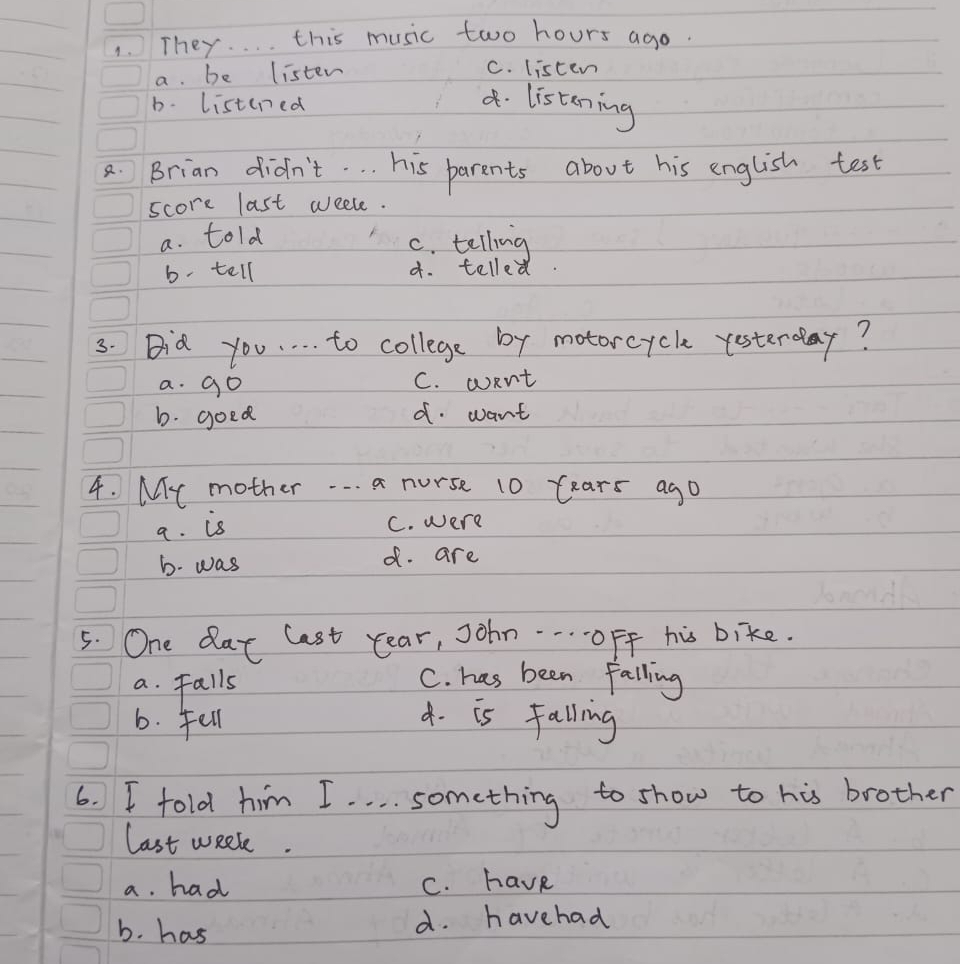 1. They .... this music two hours ago.
a. be listen c. listen
b. listened d. listening
2. Brian didn't ... his parents about his english test
score last week.
a. told c. telling
b. tell d. telled.
3. Did you .... to college by motorcycle yesterday?
a. go c. went
b. goed d. want
4. My mother --- a nurse 10 years ago
a. is c. were
b. was d. are
5. One day last year, John ---- off his bike.
a. falls c. has been falling
b. fell d. is falling
6. I told him I .... something to show to his brother
last week.
a. had c. have
b. has d. have had